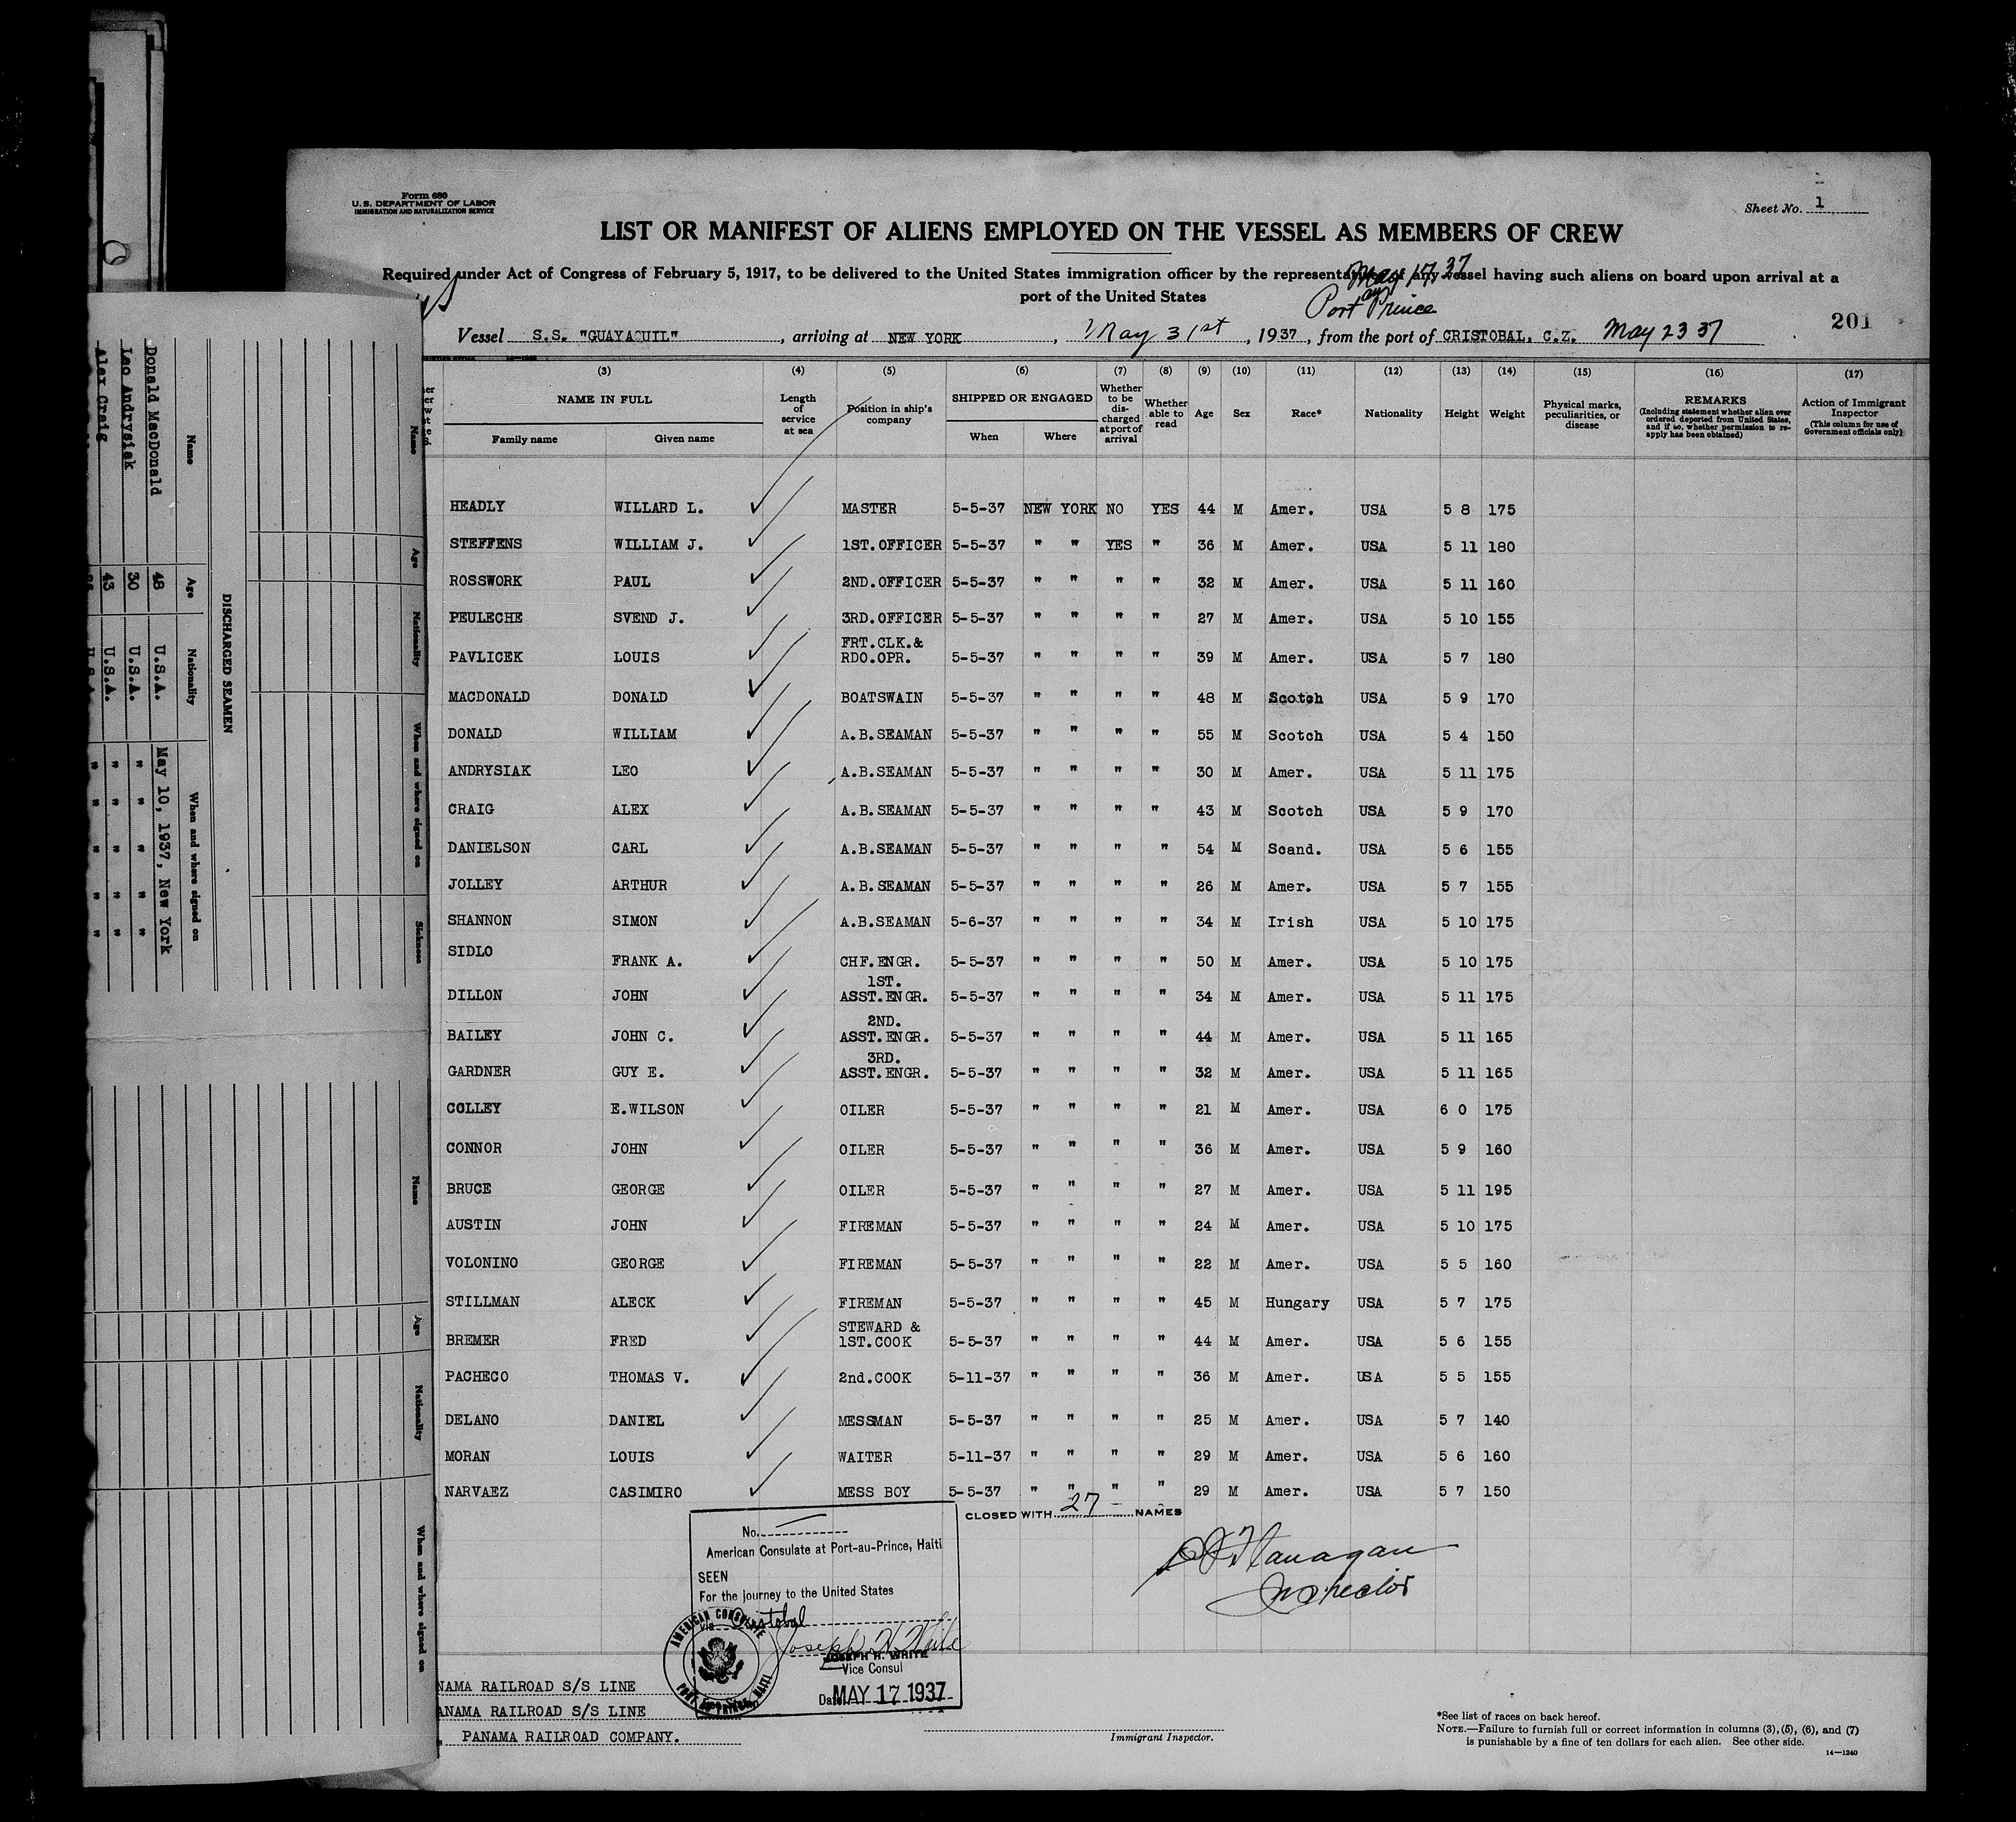 Form 680
U.S. DEPARTMENT OF LABOR
IMMIGRATION AND NATURALIZATION SERVICE
Sheet No. 1
LIST OR MANIFEST OF ALIENS EMPLOYED ON THE VESSEL AS MEMBERS OF CREW
Required under Act of Congress of February 5, 1917, to be delivered to the United States immigration officer by the representative of any vessel having such aliens on board upon arrival at a
port of the United States
May 17, 37
Port au Prince
Vessel S.S. "GUAYAQUIL", arriving at NEW YORK, May 31st, 1937, from the port of CRISTOBAL, C.Z. May 23 37
201
(3) (4) (5) (6) (7) (8) (9) (10) (11) (12) (13) (14) (15) (16) (17)
NAME IN FULL
Family name Given name
Length of service at sea
Position in ship's company
SHIPPED OR ENGAGED
When Where
Whether to be discharged at port of arrival
Whether able to read
Age
Sex
Race*
Nationality
Height
Weight
Physical marks, peculiarities, or disease
REMARKS
(Including statement whether alien ever ordered deported from United States, and if so, whether permission to reapply has been obtained)
Action of Immigrant Inspector
(This column for use of Government officials only)
HEADLY WILLARD L. MASTER 5-5-37 NEW YORK NO YES 44 M Amer. USA 5 8 175
STEFFENS WILLIAM J. 1ST.OFFICER 5-5-37 " " YES " 36 M Amer. USA 5 11 180
ROSSWORK PAUL 2ND.OFFICER 5-5-37 " " " " 32 M Amer. USA 5 11 160
PEULECHE SVEND J. 3RD.OFFICER 5-5-37 " " " " 27 M Amer. USA 5 10 155
PAVLICEK LOUIS FRT.CLK.& RDO.OPR. 5-5-37 " " " " 39 M Amer. USA 5 7 180
MACDONALD DONALD BOATSWAIN 5-5-37 " " " " 48 M Scotch USA 5 9 170
DONALD WILLIAM A.B.SEAMAN 5-5-37 " " " " 55 M Scotch USA 5 4 150
ANDRYSIAK LEO A.B.SEAMAN 5-5-37 " " " " 30 M Amer. USA 5 11 175
CRAIG ALEX A.B.SEAMAN 5-5-37 " " " " 43 M Scotch USA 5 9 170
DANIELSON CARL A.B.SEAMAN 5-5-37 " " " " 54 M Scand. USA 5 6 155
JOLLEY ARTHUR A.B.SEAMAN 5-5-37 " " " " 26 M Amer. USA 5 7 155
SHANNON SIMON A.B.SEAMAN 5-6-37 " " " " 34 M Irish USA 5 10 175
SIDLO FRANK A. CHF.ENGR. 5-5-37 " " " " 50 M Amer. USA 5 10 175
DILLON JOHN 1ST. ASST.ENGR. 5-5-37 " " " " 34 M Amer. USA 5 11 175
BAILEY JOHN C. 2ND. ASST.ENGR. 5-5-37 " " " " 44 M Amer. USA 5 11 165
GARDNER GUY E. 3RD. ASST.ENGR. 5-5-37 " " " " 32 M Amer. USA 5 11 165
COLLEY E.WILSON OILER 5-5-37 " " " " 21 M Amer. USA 6 0 175
CONNOR JOHN OILER 5-5-37 " " " " 36 M Amer. USA 5 9 160
BRUCE GEORGE OILER 5-5-37 " " " " 27 M Amer. USA 5 11 195
AUSTIN JOHN FIREMAN 5-5-37 " " " " 24 M Amer. USA 5 10 175
VOLONINO GEORGE FIREMAN 5-5-37 " " " " 22 M Amer. USA 5 5 160
STILLMAN ALECK FIREMAN 5-5-37 " " " " 45 M Hungary USA 5 7 175
BREMER FRED STEWARD & 1ST.COOK 5-5-37 " " " " 44 M Amer. USA 5 6 155
PACHECO THOMAS V. 2nd.COOK 5-11-37 " " " " 36 M Amer. USA 5 5 155
DELANO DANIEL MESSMAN 5-5-37 " " " " 25 M Amer. USA 5 7 140
MORAN LOUIS WAITER 5-11-37 " " " " 29 M Amer. USA 5 6 160
NARVAEZ CASIMIRO MESS BOY 5-5-37 " " " " 29 M Amer. USA 5 7 150
CLOSED WITH 27 NAMES
Flanagan
Inspector
No.
American Consulate at Port-au-Prince, Haiti
SEEN
For the journey to the United States
via Cristobal
Joseph H. White
JOSEPH H. WHITE
Vice Consul
Date MAY 17 1937
AMERICAN CONSULATE
PORT-AU-PRINCE, HAITI
NAMA RAILROAD S/S LINE
ANAMA RAILROAD S/S LINE
PANAMA RAILROAD COMPANY.
Immigrant Inspector.
*See list of races on back hereof.
NOTE.—Failure to furnish full or correct information in columns (3), (5), (6), and (7)
is punishable by a fine of ten dollars for each alien. See other side.
14—1240
DISCHARGED SEAMEN
Name Age Nationality When and where signed on
Donald MacDonald 48 U.S.A. May 10, 1937, New York
Leo Andrysiak 30 U.S.A. " " " "
Alex Craig 43 U.S.A. " " " "
Name Age Nationality When and where signed on Sickness
Name Age Nationality When and where signed on